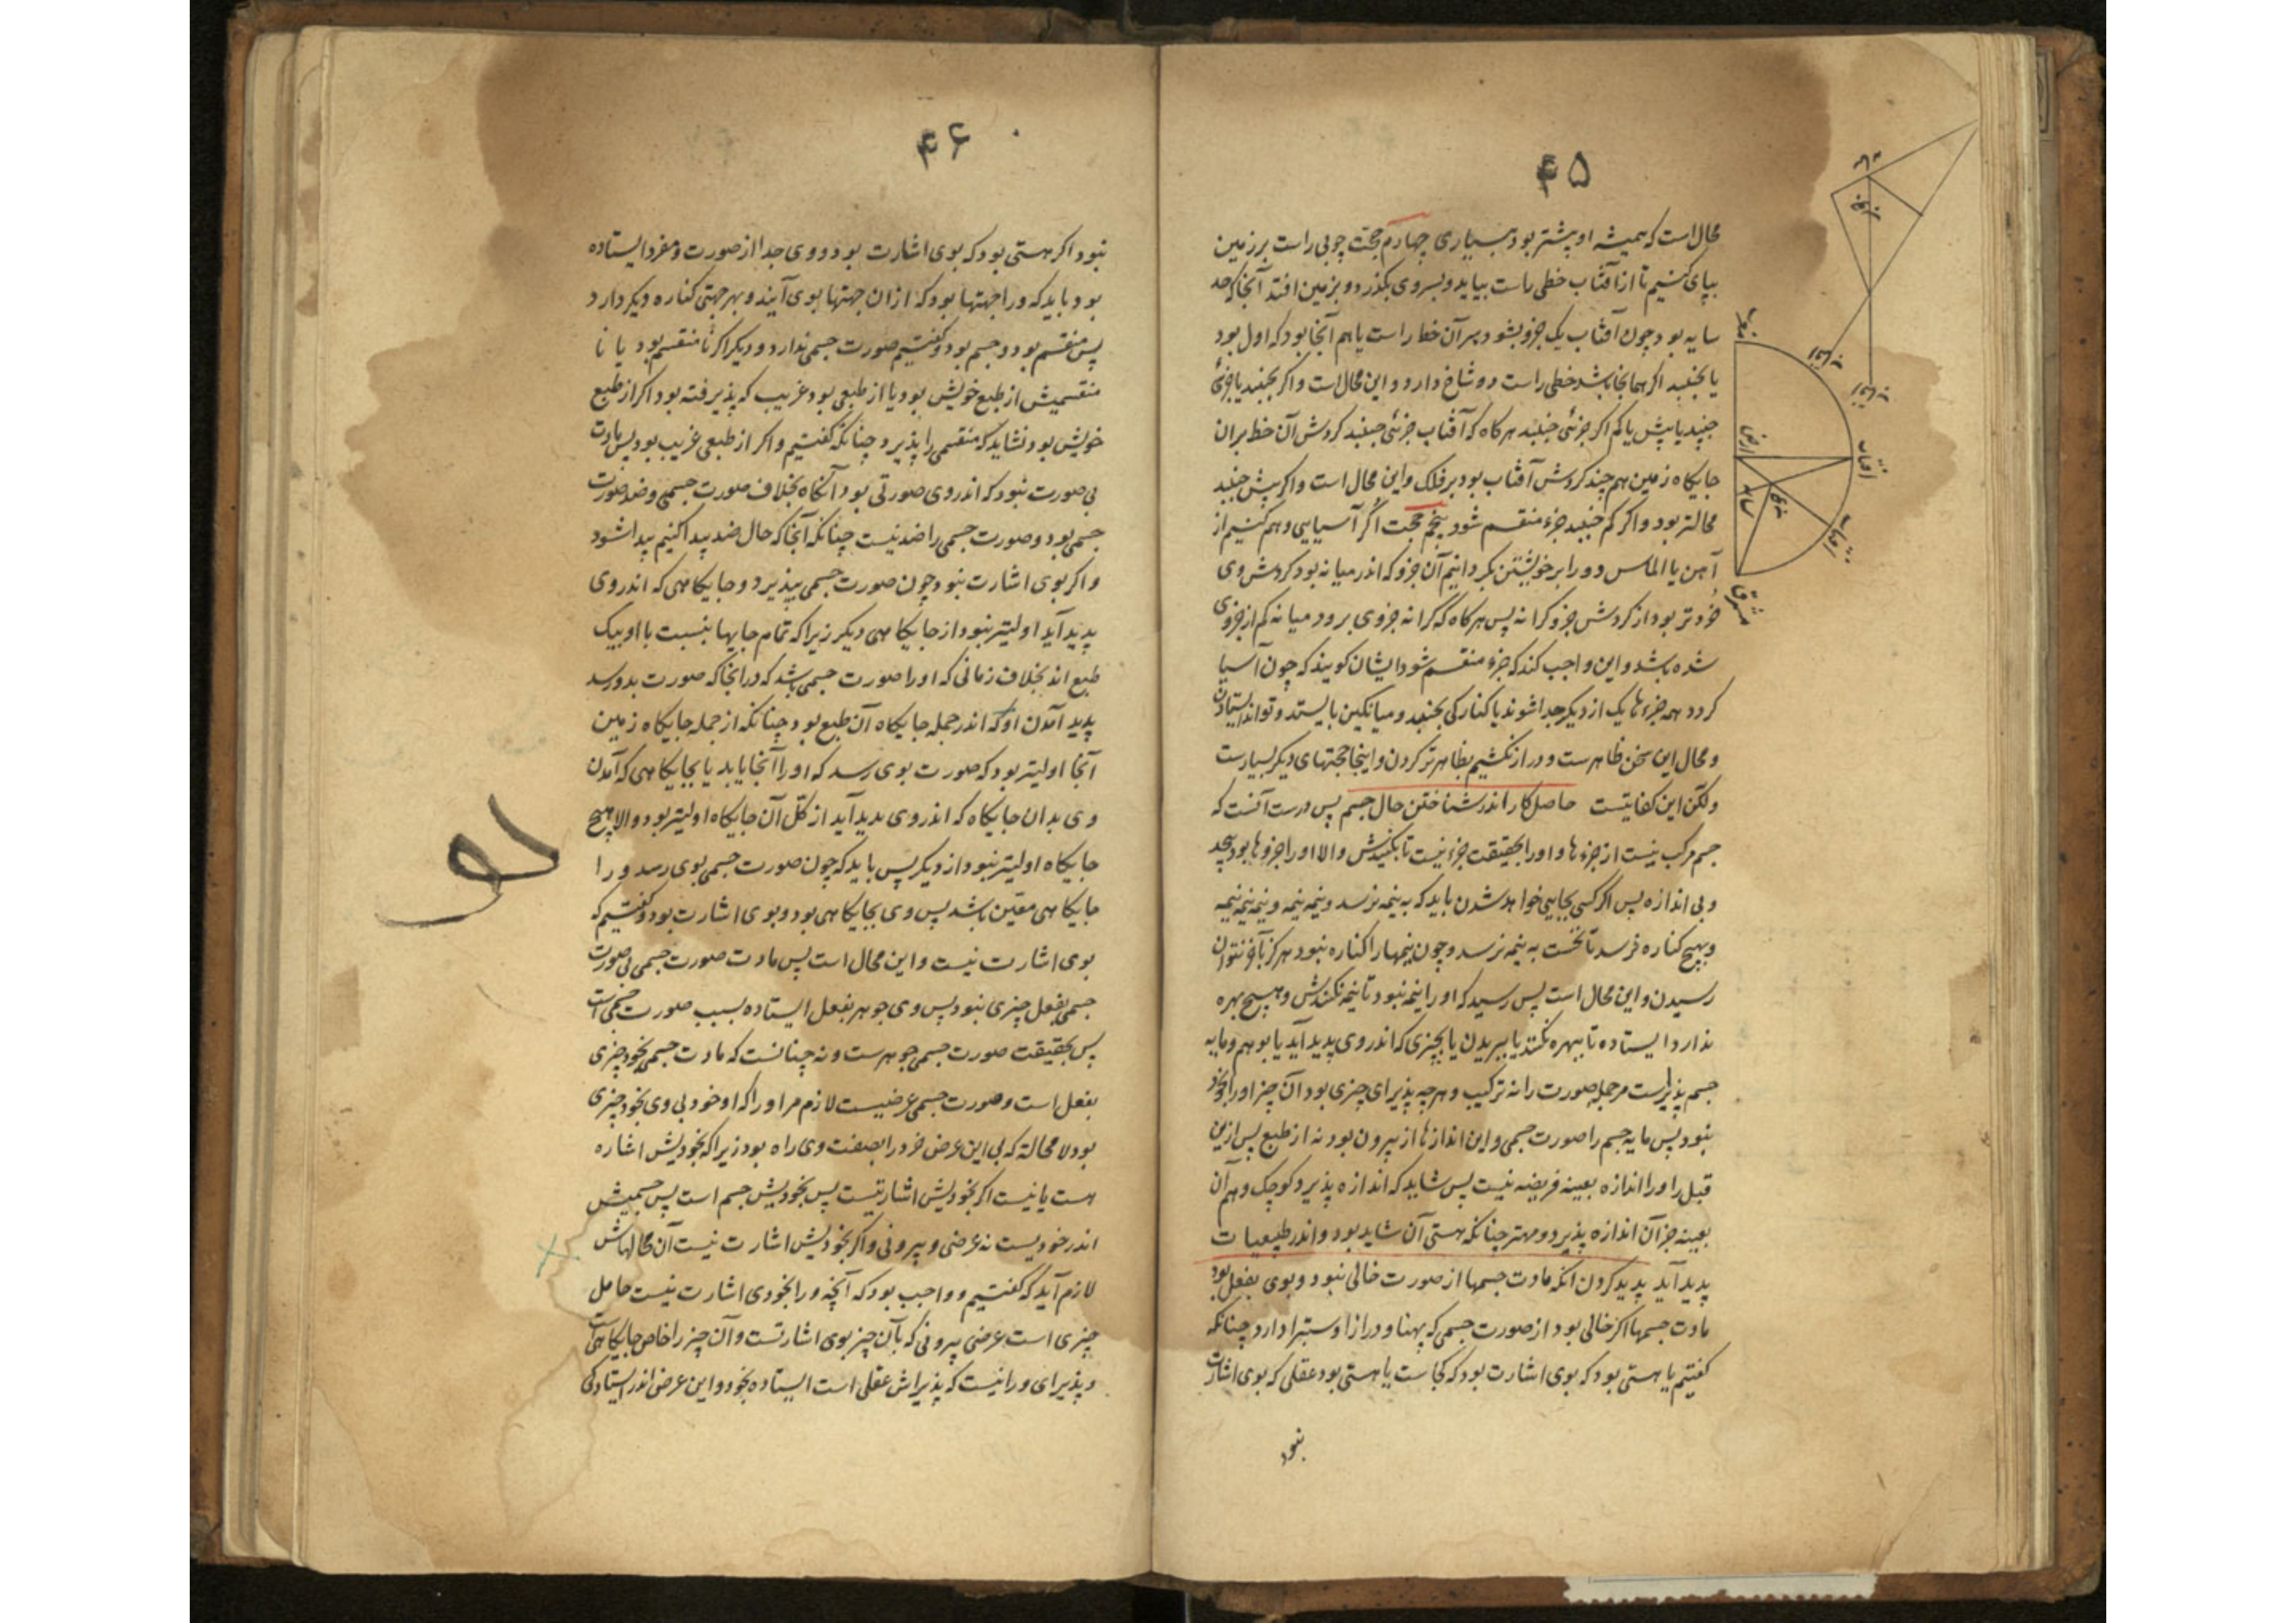 ۴۵
محال است که همیشه او پیشتر بود بسیاری چهارم حجت چوبی راست بر زمین
بپای کنیم تا از آفتاب خطی راست بیاید و بسر وی بگذرد و بزمین افتد آنجا که حد
سایه بود چون آفتاب یک جزو بشود سر آن خط راست یا هم آنجا بود که اول بود
یا بجنبد اکر همانجا باشد خطی راست دو شاخ دارد و این محال است و اکر بجنبد یا جزئی
جنبد یا بیش یا کم اکر جزئی جنبد هر کاه که آفتاب جزئی جنبد کردش آن خط بر ان
جایکاه زمین هم چند کردش آفتاب بود بر فلک و این محال است و اکر بیش جنبد
محالتر بود و اکر کم جنبد جزء منقسم شود پنجم حجت اکر آسیایی وهم کنیم از
آهن یا الماس و ورا بر خویشتن بکردانیم آن جزو که اندر میانه بود کردش وی
خردتر بود از کردش جزو کرانه پس هرکاه که کرانه جزوی برود میانه کم از جزوی
شده باشد و این واجب کند که جزء منقسم شود ایشان کویند که چون آسیا
کردد همه جزءها یک از دیکر جدا شوند یا کنارکی بجنبد و میانکین بایستد و تواند ایستادن
و محال این سخن ظاهرست و دراز نکشیم بظاهرتر کردن و اینجا حجتهای دیکر بسیارست
ولکن این کفایتست حاصل کار اندر شناختن حال جسم پس درست آنست که
جسم مرکب نیست از جزءها و اورا بحقیقت جزء نیست تا بکنیدش والا اورا جزوها بود بیحد
و بی اندازه پس اکر کسی بجایی خواهد شدن باید که به نیمه نرسد و نیمه نیمه و نیمه نیمه نیمه
و بهیچ کناره نرسد تا نخست به نیمه نرسد و چون نیمها را کناره نبود هرکز بآخر نتوان
رسیدن و این محال است پس رسید که اورا نیمه نبود تا نیمه نکنندش و هیچ بهره
ندارد ایستاده تا ببهره نکنند یا ببریدن یا بچیزی که اندر وی پدید آید یا بوهم و مایه
جسم پذیراست مر جمله صورت را نه ترکیب و هرچه پذیرای چیزی بود آن چیز اورا بخود
نبود پس مایه جسم را صورت جسمی و این اندازها از بیرون بود نه از طبع پس ازین
قبل را اورا اندازه بعینه فریضه نیست پس شاید که اندازه پذیرد کوچک و هم آن
بعینه جز آن اندازه پذیرد و مهتر چنانکه هستی آن شاید بود و اندر طبیعیات
پدید آید پدید کردن انکه مادت جسمها از صورت خالی نبود و بوی بفعل بود
مادت جسمها اکر خالی بود از صورت جسمی که پهنا و درازا و ستبرا دارد چنانکه
کفتیم یا هستی بود که بوی اشارت بود که کجاست یا هستی بود عقلی که بوی اشارت
نبود
آفتاب
آفتاب
ارض
سایه
مشرق
۴۶
نبود اکر هستی بود که بوی اشارت بود و وی جدا از صورت و مفرد ایستاده
بود باید که ورا جهتها بود که از ان جهتها بوی آیند و بهر جهتی کناره دیکر دارد
پس منقسم بود و جسم بود و کفتیم صورت جسمی ندارد و دیکر اکر نا منقسم بود یا نا
منقسمیش از طبع خویش بود یا از طبعی بود غریب که پذیرفته بود اکر از طبع
خویش بود نشاید که منقسمی را پذیرد چنانکه کفتیم و اکر از طبعی غریب بود پس مادت
بی صورت نبود که اندر وی صورتی بود آنکاه بخلاف صورت جسمی و ضد صورت
جسمی بود و صورت جسمی را ضد نیست چنانکه آنجا که حال ضد پیدا کنیم پیدا شود
و اکر بوی اشارت نبود چون صورت جسمی بپذیرد و جایکاهی که اندر وی
پدید آید اولیتر نبود از جایکاهی دیکر زیرا که تمام جایها بنسبت با او بیک
طبع اند بخلاف زمانی که اورا صورت جسمی باشد که در انجا که صورت بدو رسد
پدید آمدن او که اندر جمله جایکاه آن طبع بود چنانکه از جمله جایکاه زمین
آنجا اولیتر بود که صورت بوی رسد که اورا آنجا یابد یا بجایکاهی که آمدن
وی بدان جایکاه که اندر وی پدید آید از کل آن جایکاه اولیتر بود والا هیچ
جایکاه اولیتر نبود از دیکر پس باید که چون صورت جسمی بوی رسد ورا
جایکاهی معین باشد پس وی بجایکاهی بود و بوی اشارت بود و کفتیم که
بوی اشارت نیست و این محال است پس مادت صورت جسمی بی صورت
جسمی بفعل چیزی نبود پس وی جوهر بفعل ایستاده بسبب صورت جسمی است
پس بحقیقت صورت جسمی جوهرست و نه چنانست که مادت جسمی بخود چیزی
بفعل است و صورت جسمی عرضیست لازم مر اورا که او خود بی وی بخود چیزی
بود لا محالة که بی این عرض خرد را بصفت وی راه بود زیرا که بخودیش اشاره
هست یا نیست اکر بخودیش اشارتیست پس بخودیش جسم است پس جسمیش
اندر خودیست نه عرضی و بیرونی و اکر بخودیش اشارت نیست آن محالهاش
لازم آید که کفتیم و واجب بود که آنچه ورا بخودی اشارت نیست حامل
چیزی است عرضی بیرونی که بآن چیز بوی اشارتست و آن چیز را خاص جایکاهی است
و پذیرای ورا نیست که پذیراش عقلی است ایستاده بخود و این عرض اندر ایستادکی